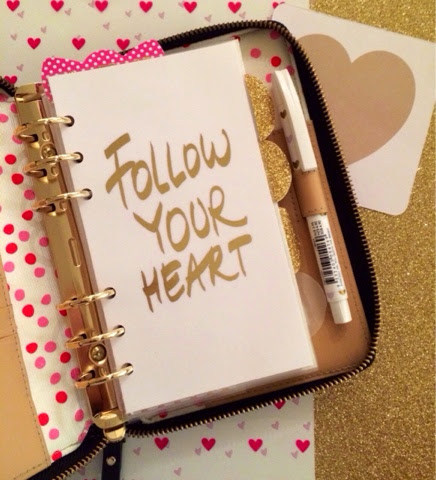 FOLLOW
YOUR
HEART